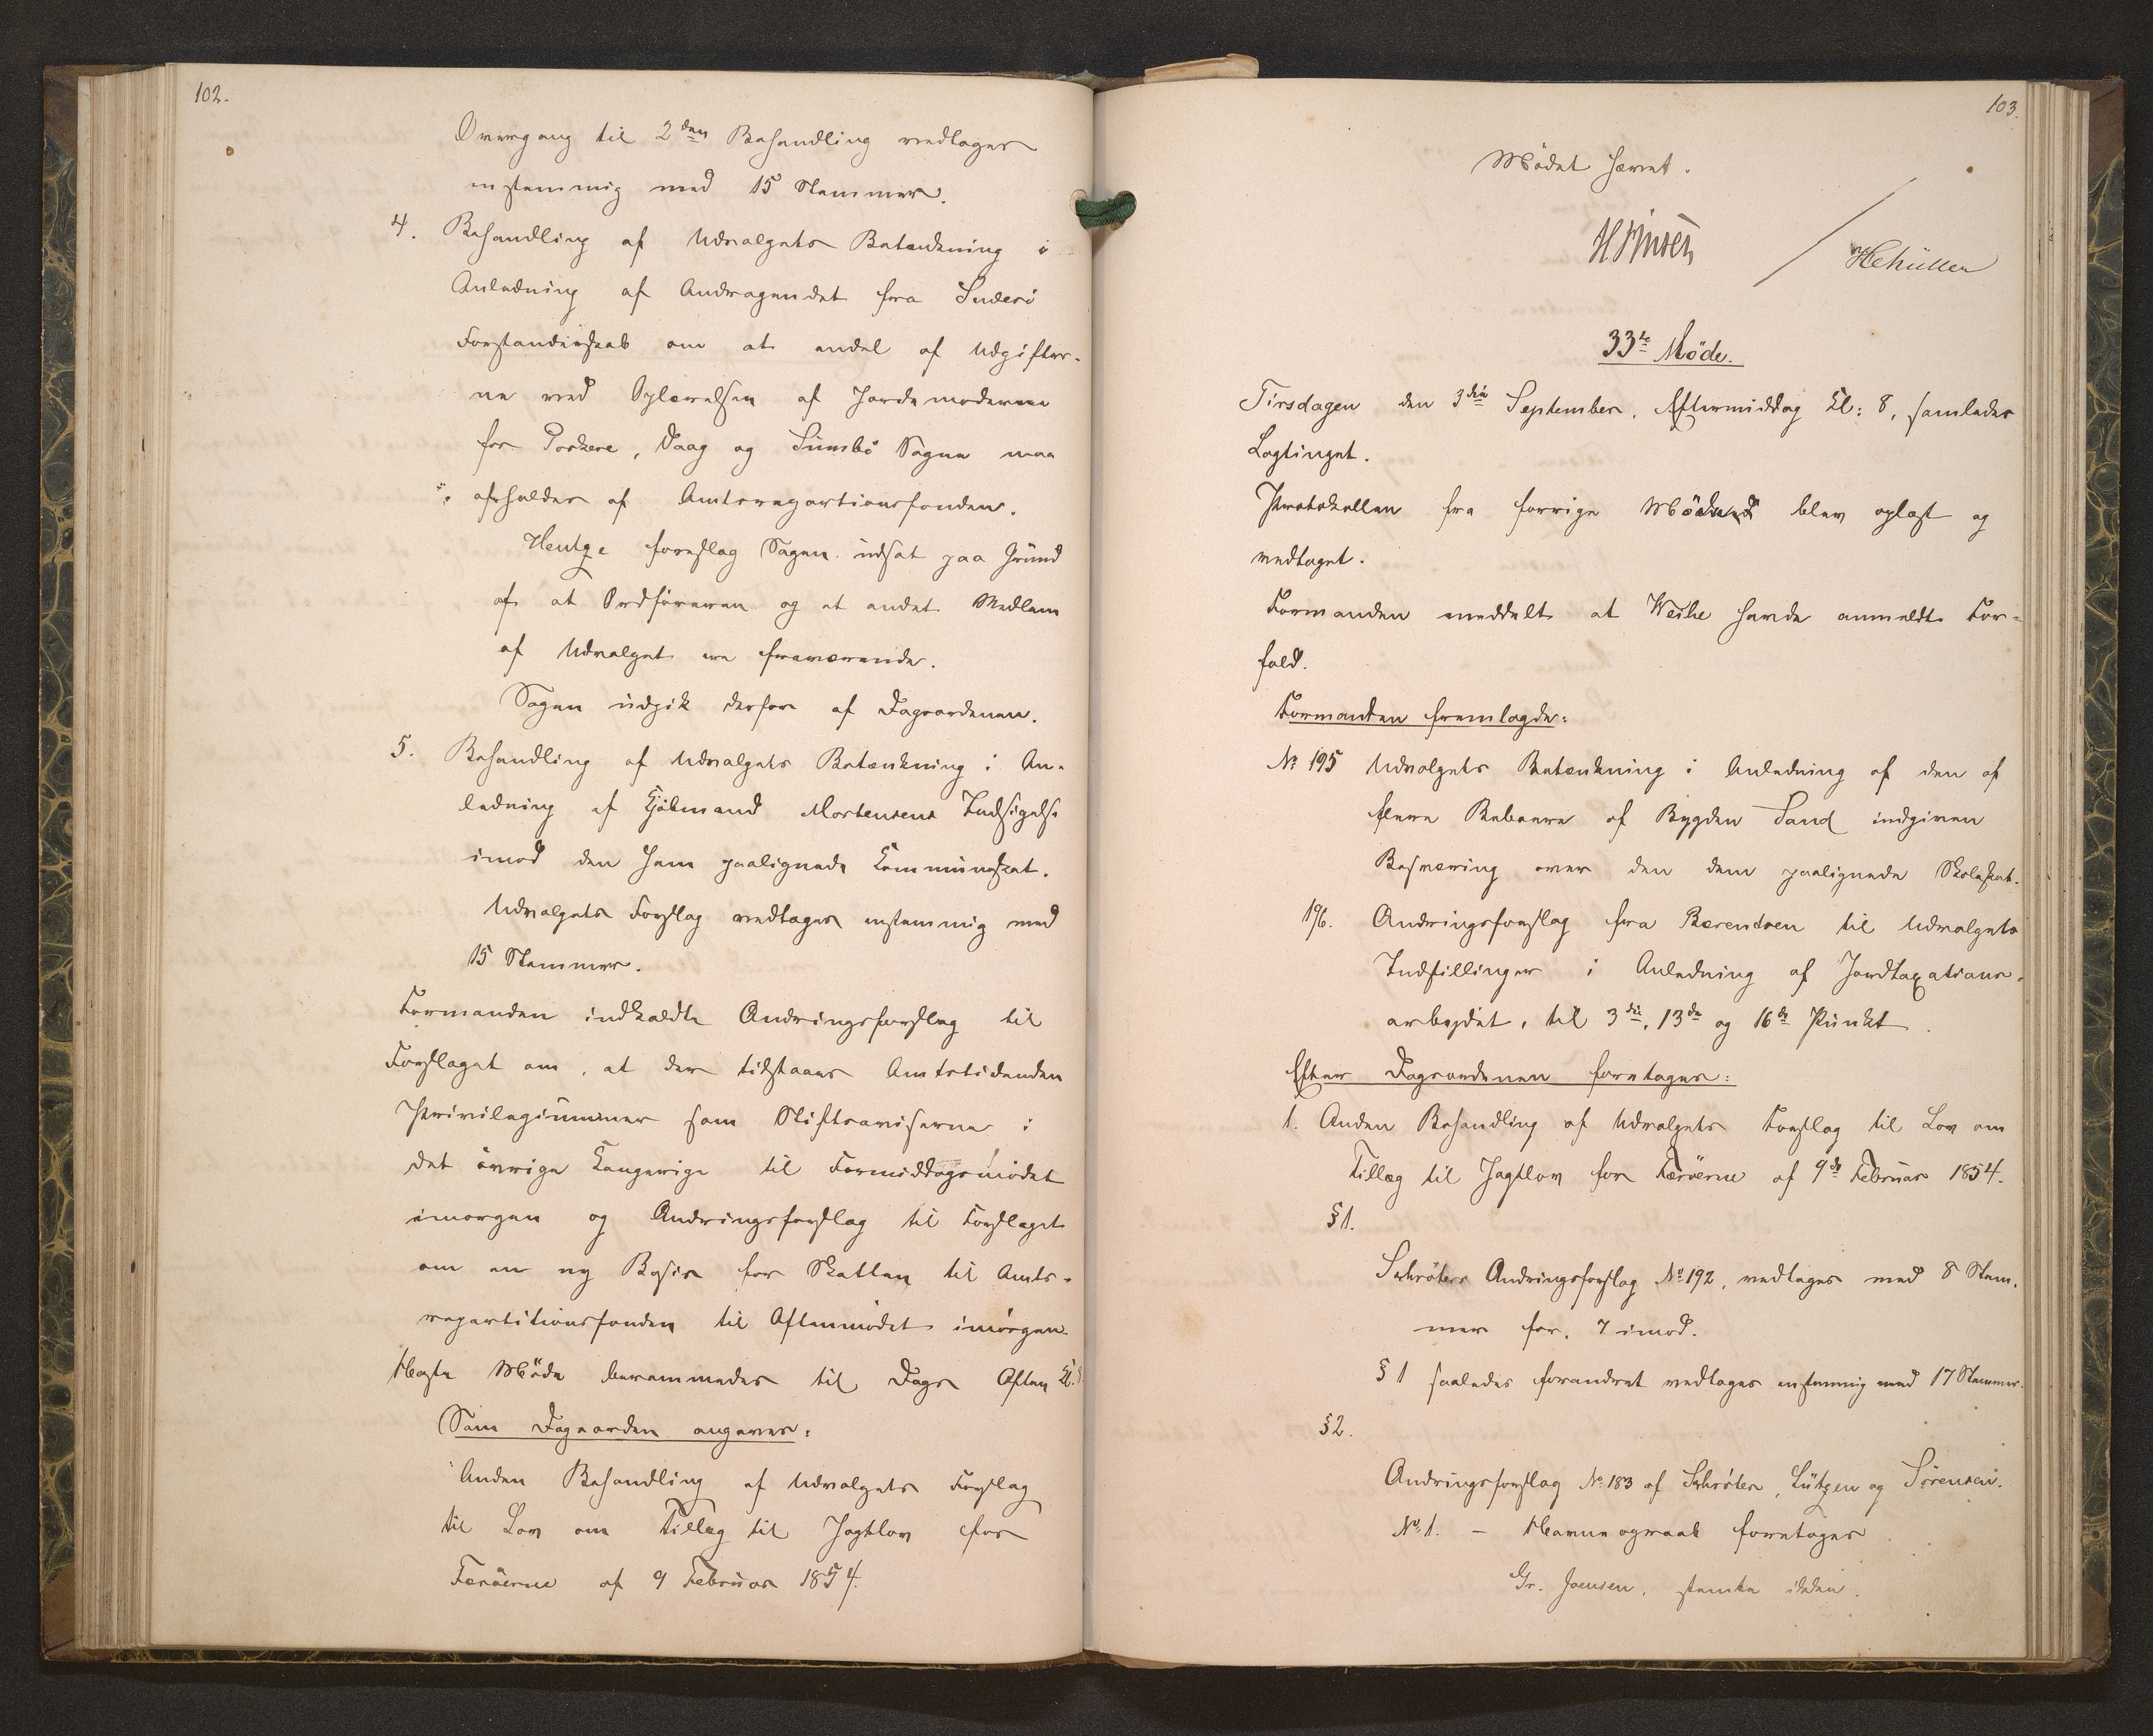 102.
Overgang til 2den Behandling vedtages
enstemmig med 15 Stemmer.
4. Behandling af Udvalgets Betænkning i
Anledning af Andragendet fra Suderö
Forstanderskab om at endel af Udgifter-
ne ved Oplærelsen af Jordemoderne
for Porkere, Vaag og Sumbö Sogne maa
afholdes af Amtsrepartionsfonden.
Hentze foreslog Sagen udsat paa Grund
af at Ordföreren og et andet Medlem
af Udvalget ere fraværende.
Sagen udgik derfor af Dagsordenen.
5. Behandling af Udvalgets Betænkning i An-
ledning af Kjöbmand Mortensens Indsigelse
imod den ham paalignede Kommuneskat.
Udvalgets Forslag vedtages enstemmig med
15 Stemmer.
Formanden indkaldte Ændringsforslag til
Forslaget om, at der tilstaaes Amtstidenden
Privilegiummer som Stiftsaviserne i
det övrige Kongerige til Formiddagsmödet
imorgen og Ændringsforslag til Forslaget
om en ny Basis for Skatten til Amts-
repartitionsfonden til Aftenmödet imorgen.
Næste Möde berammedes til Dags Aften Kl. 8
Som Dagsorden angaves:
Anden Behandling af Udvalgets Forslag
til Lov om Tillæg til Jagtlov for
Færöerne af 9 Februar 1854.
103.
Mödet hævet.
HJensen / Schüller
33te Möde.
Tirsdagen den 3die September, Eftermiddag Kl: 8, samledes
Lagtinget.
Protokollen fra forrige Möde blev oplæst og
vedtaget.
Formanden meddelte at Weihe havde anmeldt For-
fald.
Formanden fremlagde:
No 195 Udvalgets Betænkning i Anledning af den af
flere Beboere af Bygden Sand indgiven
Besværing over den dem paalignede Skoleskat.
196. Ændringsforslag fra Bærendsen til Udvalgets
Indstillinger i Anledning af Jordtaxations-
arbejdet, til 3die, 13de og 16de Punkt.
Efter Dagsordenen foretages:
1. Anden Behandling af Udvalgets Forslag til Lov om
Tillæg til Jagtlov for Færöerne af 9de Februar 1854.
§1.
Schröters Ændringsforslag No 192, vedtages med 8 Stem-
mer for, 7 imod.
§ 1 saaledes forandret vedtages enstemmig med 17 Stemmer.
§2.
Ændringsforslag No 183 af Schröter, Lützen og Sörensen.
No 1. – Navneopraab foretages
Gr. Joensen, stemte ikke.